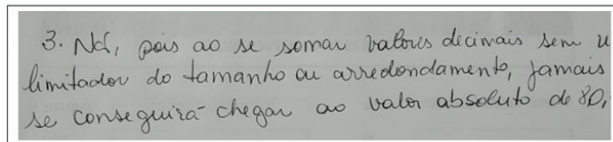 3. Não, pois ao se somar valores decimais sem u
limitador do tamanho ou arredondamento, jamais
se conseguirá chegar ao valor absoluto do 80,